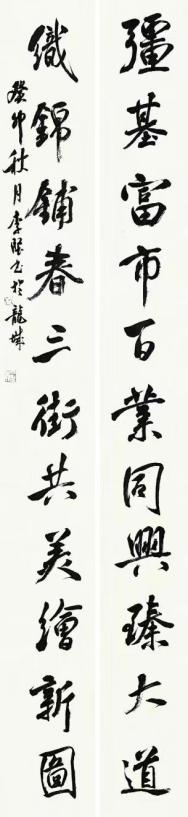 彊基富市百業同興臻大道
織錦鋪春三街共美繪新圖
癸卯秋月李&#8203;書於龍城